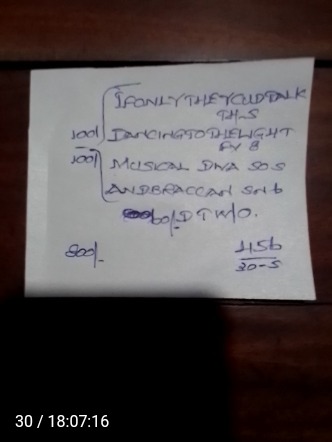 IFONLYTHEYCULDTALK
TH.S
100/ DANCINGTOTHELIGHT
FV 8
100/ MUSICAL DNA SO S
ANDBRACCAN SN 6
60/- DTW/O.
800/- 456
30-5
30 / 18:07:16